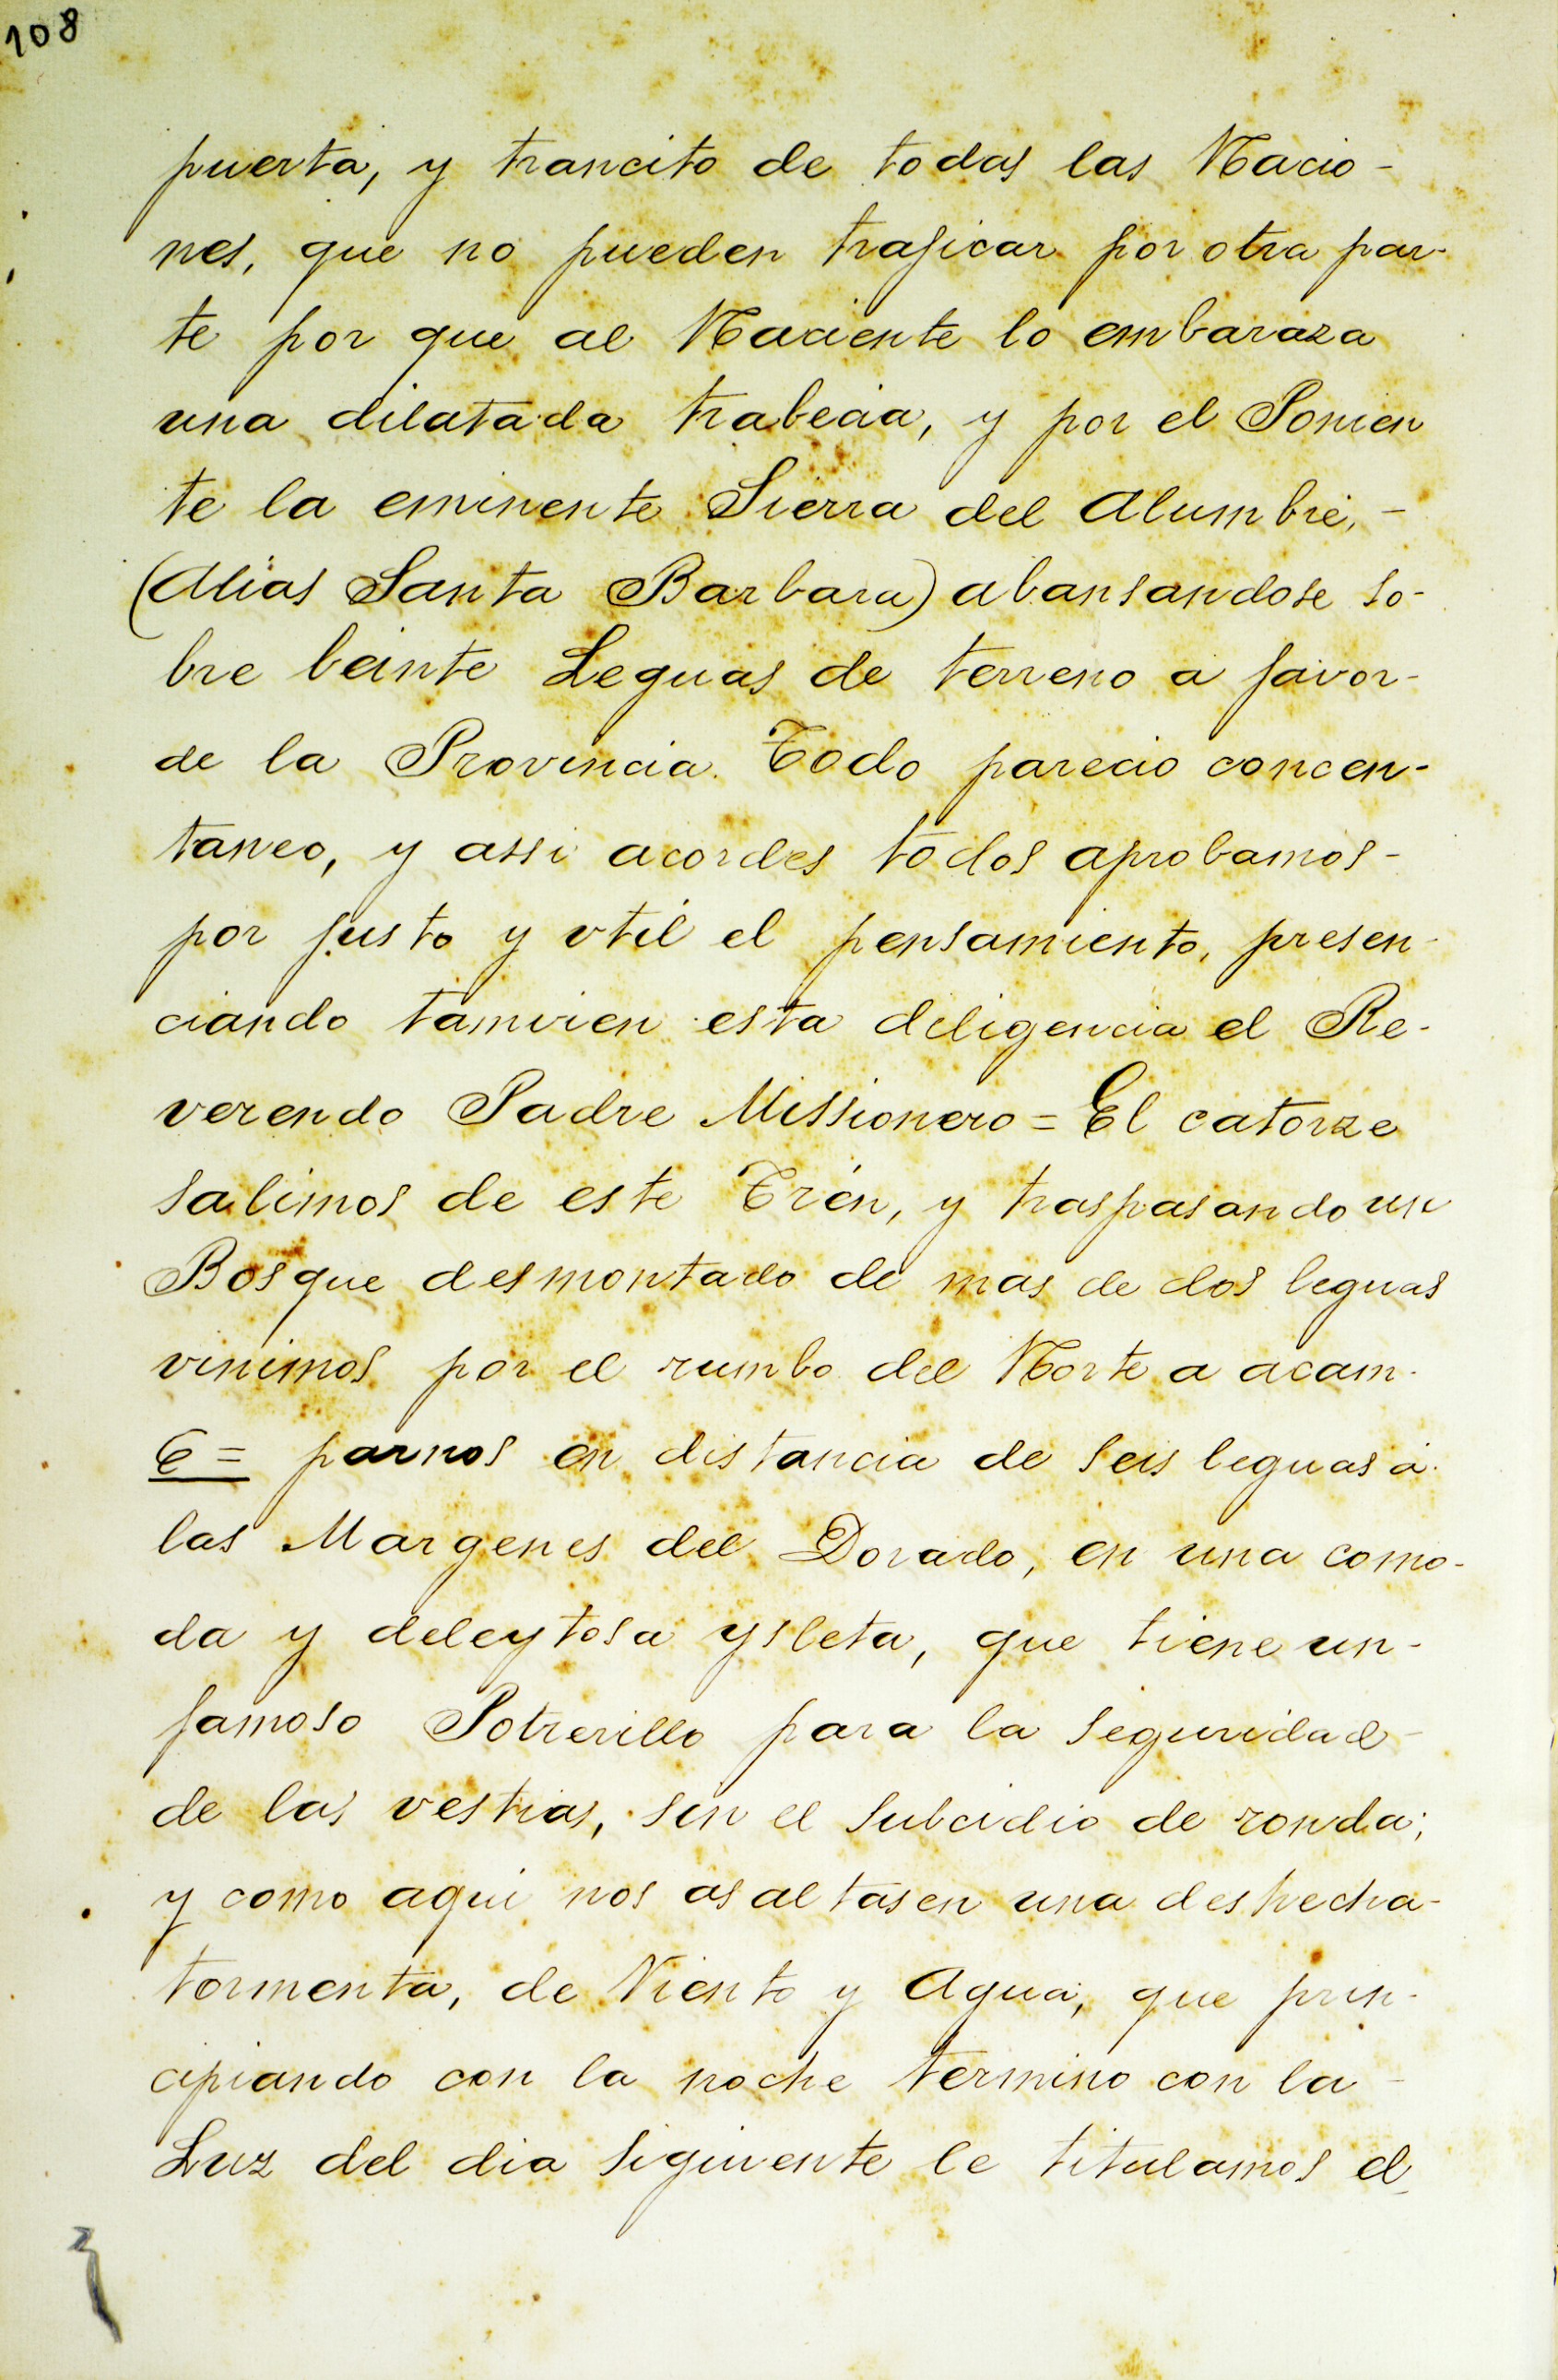 108
puerta, y trancito de todas las Nacio-
nes, que no pueden traficar por otra par-
te por que al Naciente lo embaraza
una dilatada trabecia, y por el Ponien
te la eminente Sierra del Alumbre, -
(Alias Santa Barbara) abansandose so-
bre beinte Leguas de terreno a favor-
de la Provincia. Todo parecio concen-
taneo, y assi acordes todos aprobamos-
por justo y vtil el pensamiento, presen-
ciando tamvien esta diligencia el Re-
verendo Padre Missionero = El catorze
salimos de este Trén, y traspasando un
Bosque desmontado de mas de dos leguas
vinimos por el rumbo del Norte a acam-
6 = parnos en distancia de seis leguas á
las Margenes del Dorado, en una como-
da y deleytosa ysleta, que tiene un-
famoso Potrerillo para la seguridad-
de las vestias, sin el subcidio de ronda;
y como aqui nos asaltasen una deshecha-
tormenta, de Viento y Agua, que prin-
cipiando con la noche termino con la -
Luz del dia siguiente le titulamos el